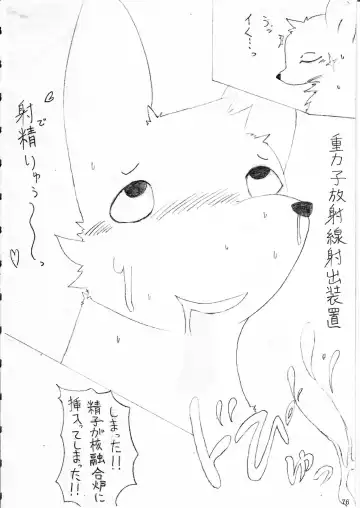 うっ
イく…っ
重力子放射線射出装置
で
射精りゅぅ〜〜っ♡
しまった!!
精子が核融合炉に
挿入ってしまった!!